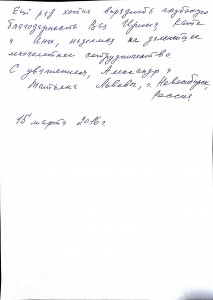 Ещё раз хотим выразить глубокую
благодарность Вам Ирина, Катя
и Инна, надеемся на дальнейшее
многолетнее сотрудничество.
С уважением, Александр и
Татьяна Львовы, г. Новосибирск,
Россия
15 марта 2016 г.